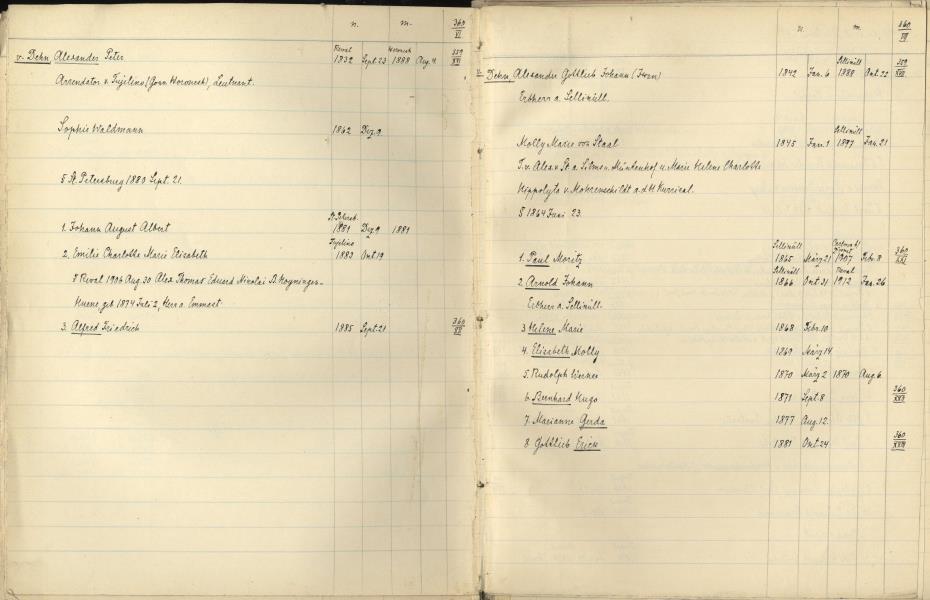 n. m. 360 VI
Reval Woronesch 359
v. Dehn, Alexander Peter 1832 Sept. 23 1888 Aug. 4 XVI
Arrendator v. Fujilino, (Gouv. Woronesch), Lieutnant.
Sophie Waldmann 1862 Dez. 9
§ St. Petersburg 1880 Sept. 21.
St. Petersb.
1. Johann August Albert 1881 Dez. 9 1881
Fujilino
2. Emilie Charlotte Marie Elisabeth 1883 Okt 19
§ Reval 1906 Aug. 30 Alex. Thomas Eduard Nikolai B. Hoyningen-
Huene geb. 1874 Juli 2, Herr a. Emmast.
3. Alfred Friedrich 1885 Sept. 21 360 XII
n. m. 360 VII
Sellinüll 359
v. Dehn, Alexander Gottlieb Johann (Iwan) 1842 Jan. 6 1888 Okt. 22
Erbherr a. Sellinüll.
Sellinüll
Molly Marie von Staal 1845 Jan. 1 1897 Jan. 21
T. v. Alex. v. St. a. Müntenhof u. Marie Helene Charlotte
Hippolyta v. Mohrenschildt a. d. H. Kurrisal.
§ 1864 Juni 23.
Sellinüll
1. Paul Moritz 1865 März 21 1907 Febr. 8 360
Sellinüll Reval
2. Arnold Johann 1866 Okt 31 1912 Jan. 26
Erbherr a. Sellinüll.
3. Helene Marie 1868 Febr. 10
4. Elisabeth Molly 1869 März 14
5. Rudolph Werner 1870 März 2 1870 Aug. 6
6. Bernhard Hugo 1871 Sept. 8 360
7. Marianne Gerda 1877 Aug. 12.
8. Gottlieb Erich 1881 Okt. 24 360